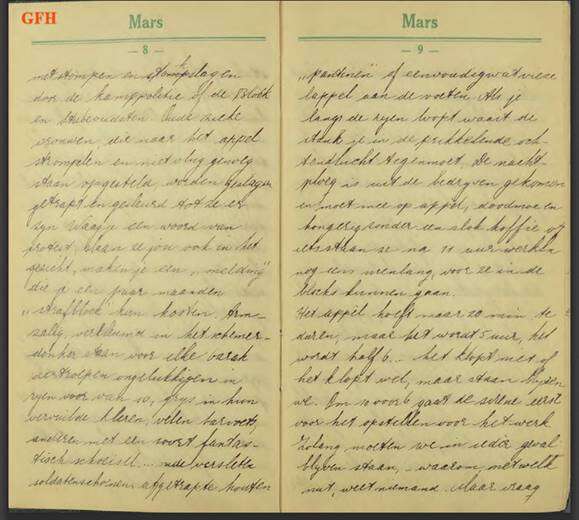 GFH
Mars
8
met stompen en stompslagen
door de kamppolitie of de Block
en Stubeoudsten. Oude zieke
vrouwen, die naar het appel
strompelen en niet vlug genoeg
staan opgesteld, worden geslagen
getrapt en gesleurd tot ze er
zyn. Waag je een woord van
protest, slaan ze jou ook in het
gezicht, maken je een „melding"
die je een paar maanden
„strafblock" kan kosten. Arm-
zalig, verkleumd in het schemer-
donker staan voor elke barak
de ongelukkigen in
ryen voor van 10, grys in hun
vervuilde kleren, velen barvoets,
anderen met een soort fantas-
tisch schoeisel... oude versleten
soldatenschoenen, afgetrapte houten
Mars
9
„pantinen" of eenvoudig wat vieze
lappen aan de voeten. Als je
langs de ryen loopt waait de
stank je in de prikkelende och-
tendlucht tegemoet. De nacht-
ploeg is uit de bedryven gekomen
en moet mee op appel, doodmoe en
hongerig zonder een slok koffie of
iets staan ze na 11 uur werken
nog een urenlang voor ze in de
blocks kunnen gaan.
Het appèl hoeft maar 20 min te
duren, maar het wordt 5 uur, het
wordt half 6. - het klopt niet of
het klopt wel, maar staan blyven
we. Om voor 6 gaat de sirene eerst
voor het opstellen voor het werk
Zolang moeten we in ieder geval
blyven staan, - waarom, met welk
nut, weet niemand. Maar vraag